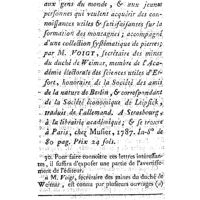 aux gens du monde, & aux jeunes
personnes qui veulent acquérir des con-
noissances utiles & satisfaisantes sur la
formation des montagnes; accompagné
d'une collection systématique de pierres;
par M. VOIGT, secrétaire des mines
du duché de Weimar, membre de l'Acadé-
mie électorale des sciences utiles d'Er-
fort, honoraire de la Société des amis
de la nature de Berlin, & correspondant
de la Société économique de Leipsick,
traduits de l'allemand. A Strasbourg,
à la librairie académique; & se trouve
à Paris, chez Musier, 1787. In-8º de
80 pag. Prix 24 sols.
30. Pour faire connoître ces lettres intéressan-
tes, il suffira d'exposer une partie de l'avertisse-
ment de l'éditeur.
« M. Voigt, secrétaire des mines du duché de
Weimar, est connu par plusieurs ouvrages (a)